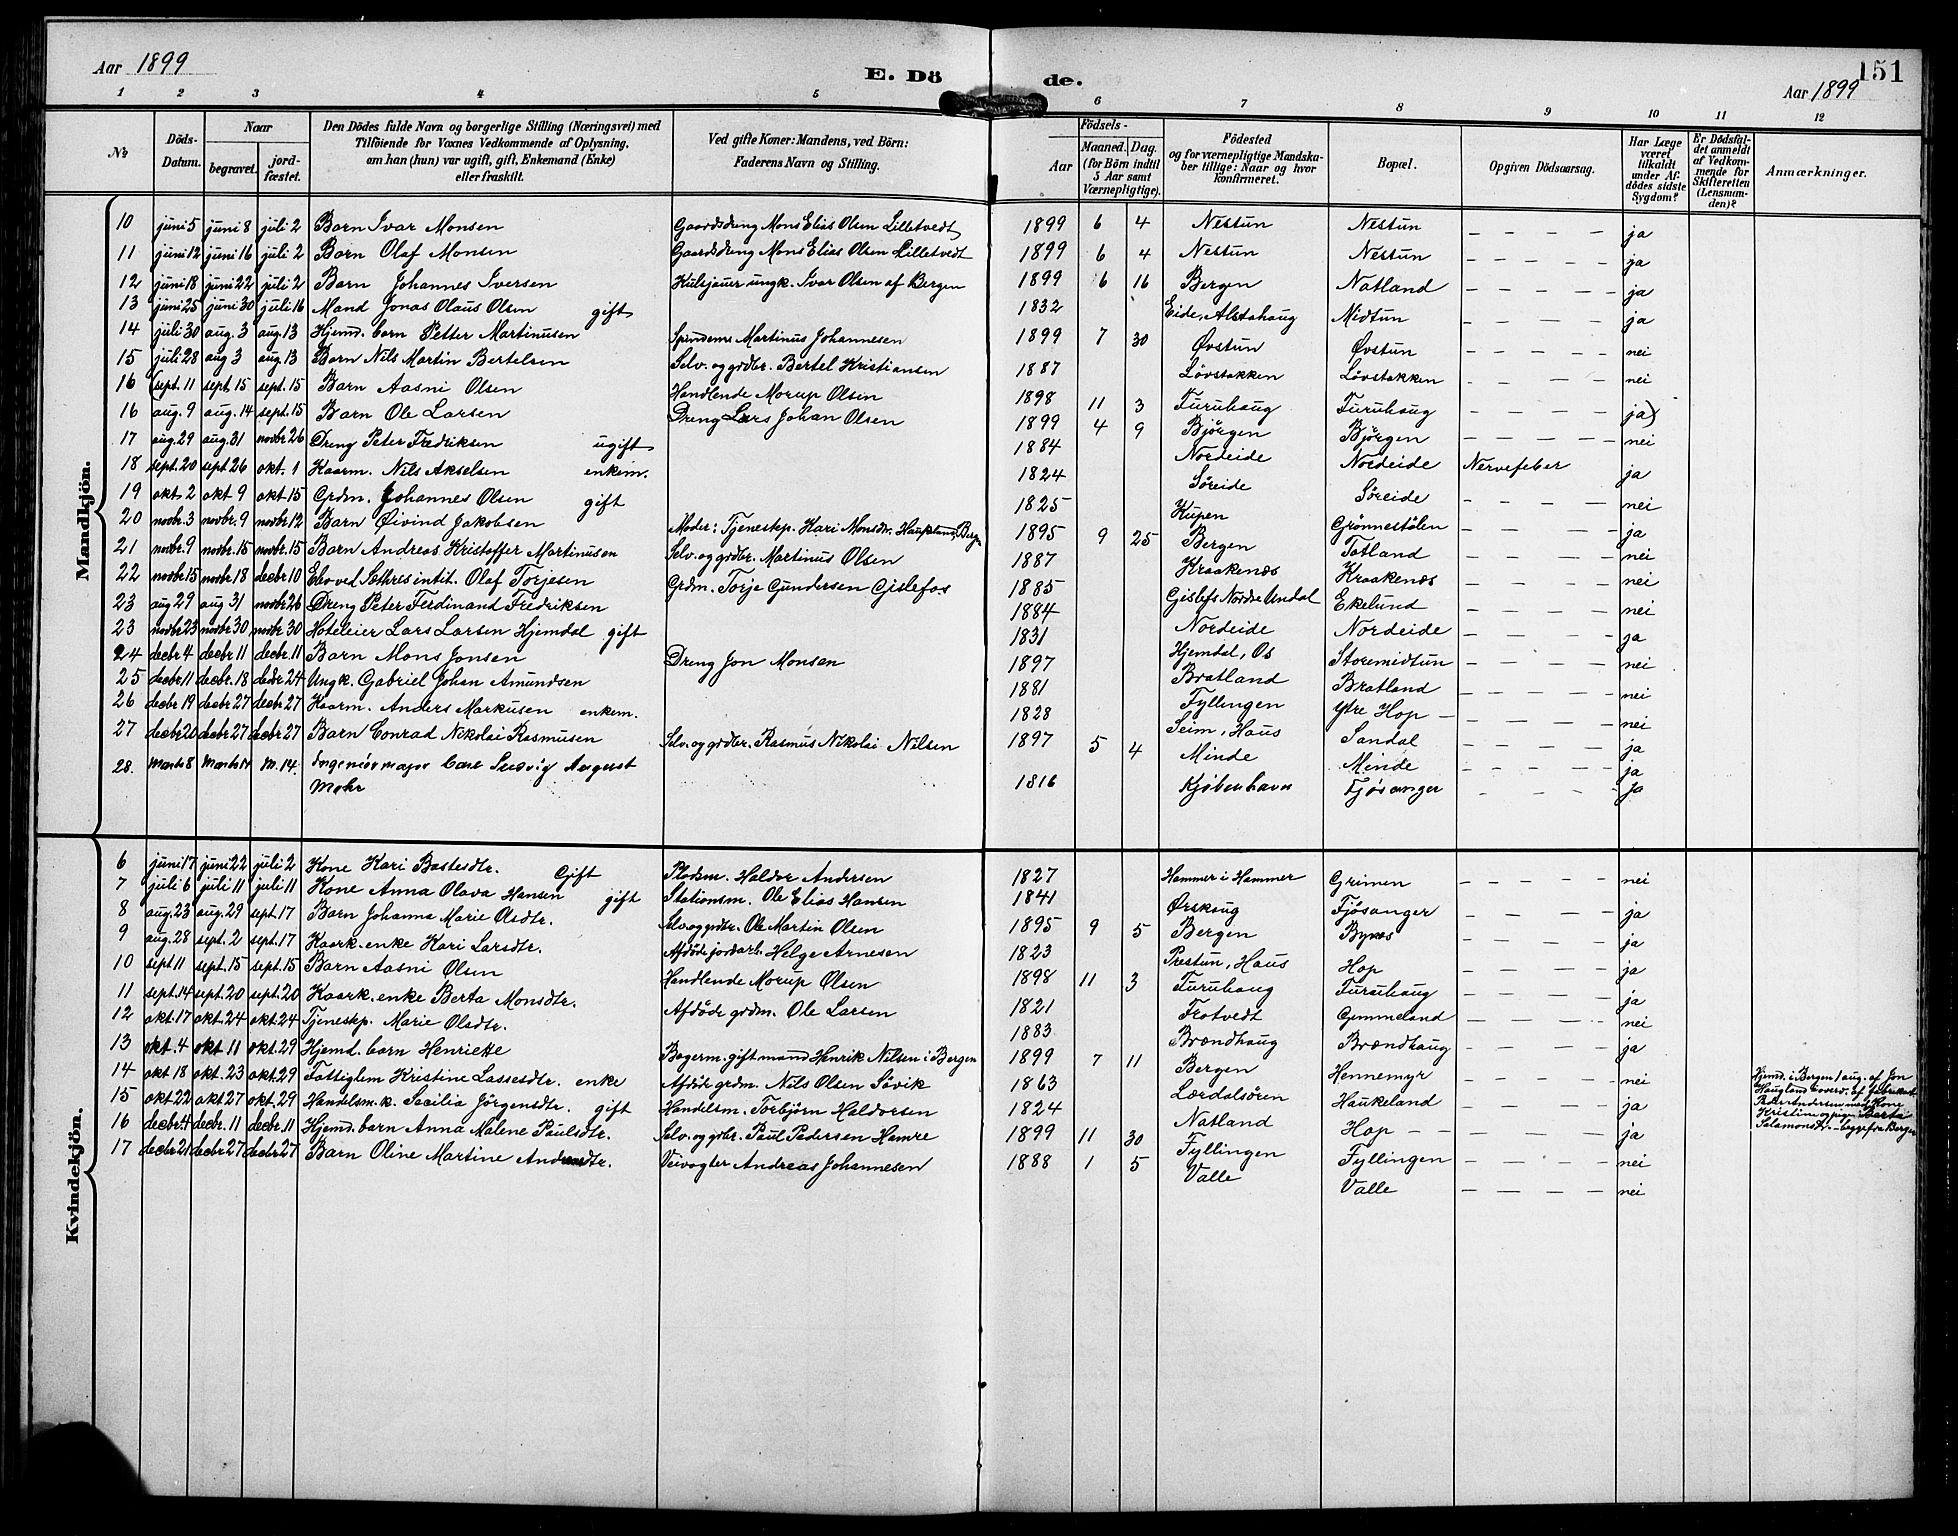 Aar 1899 E. Döde. Aar 1899 151
1 2 3 4 5 6 7 8 9 10 11 12
№ Döds-Datum. Naar begravet. jordfæstet. Den Dödes fulde Navn og borgerlige Stilling (Næringsvei) med Tilföiende for Voxnes Vedkommende af Oplysning, om han (hun) var ugift, gift, Enkemand (Enke) eller fraskilt. Ved gifte Koner: Mandens, ved Börn: Faderens Navn og Stilling. Födsels- Aar Maaned. Dag. (for Börn indtil 5 Aar samt Værnepligtige). Födested og for værnepligtige Mandskaber tillige: Naar og hvor konfirmeret. Bopæl. Opgiven Dödsaarsag. Har Læge været tilkaldt under Afdödes sidste Sygdom? Er Dödsfaldet anmeldt af Vedkommende for Skifteretten (Lensmanden)? Anmærkninger.
Mandkjön.
10 juni 5 juni 8 juli 2 Barn Ivar Monsen Gaardsdreng Mons Elias Olsen Lilletvedt 1899 6 4 Nestun Nestun – – – – ja
11 juni 12 juni 16 juli 2 Barn Olaf Monsen Gaardsdreng Mons Elias Olsen Lilletvedt 1899 6 4 Nestun Nestun – – – – ja
12 juni 18 juni 22 juli 2 Barn Johannes Iversen Kulsjauer ungk. Ivar Olsen af Bergen 1899 6 16 Bergen Natland – – – – ja
13 juni 25 juni 30 juli 16 Mand Jonas Olaus Olsen gift 1832 Eide, Alstahaug Midtun – – – – ja
14 juli 30 aug. 3 aug 13 Hjemd. barn Petter Martinusen Martinus Johannesen 1899 7 30 Øvstun Øvstun – – – – nei
15 juli 28 aug 3 aug 13 Barn Nils Martin Bertelsen Selv. og grdbr. Bertel Kristiansen 1887 Lövstakken Lövstakken – – – – nei
16 (sept. 11 sept. 15 sept. 15 Barn Aasni Olsen Handlende Morup Olsen 1898 11 3 Furuhaug Furuhaug – – – – ja)
16 aug. 9 aug. 14 sept. 15 Barn Ole Larsen Dreng Lars Johan Olsen 1899 4 9 Bjørgen Bjørgen – – – – nei
17 aug. 29 aug. 31 novbr 26 Dreng Peter Fredriksen ugift 1884 Nordeide Nordeide Nervefeber ja
18 sept. 20 sept 26 okt. 1 Kaarm. Nils Akselsen enkem. 1824 Søreide Søreide – – – – nei
19 okt 2 okt 9 okt. 15 Grdm. Johannes Olsen gift 1825 Kupen Grönnestölen – – – – ja
20 novbr. 3 novbr. 9 novbr 12 Barn Øivind Jakobsen Moder: Tjenestep. Kari Monsdr. Haukeland, Bergen 1895 9 25 Bergen Totland – – – – nei
21 novbr. 9 novbr. 15 novbr. 15 Barn Andreas Kristoffer Martinusen Selv. og grdbr. Martinus Olsen 1887 Kraakenæs Kraakenæs – – – – nei
22 novbr 15 novbr 18 decbr 10 Elev ved Sæthres intit. Olaf Torjesen Grdm. Torje Gundersen Gislefos 1885 Gislefs Nordre Undal Ekelund – – – – nei
23 aug 29 aug 31 novbr 26 Dreng Peter Ferdinand Fredriksen 1884 Nordeide Nordeide – – – – ja
23 novbr 23 novbr 30 novbr. 30 Hoteleier Lars Larsen Hjemdal gift 1831 Hjemdal, Os Storemidtun – – – – nei
24 decbr 4 decbr 11 decbr. 11 Barn Mons Jonsen Dreng Jon Monsen 1897 Bratland Bratland – – – – nei
25 decbr 11 decbr. 18 decbr 24 Ungk. Gabriel Johan Amundsen 1881 Fyllingen Ytre Hop – – – – – nei
26 decbr 19 decbr 27 decbr 27 Kaarm. Anders Markusen enkem. 1828 Seim, Haus Sandal – – – – ja
27 decbr 20 decbr 27 decbr 27 Barn Conrad Nikolai Rasmusen Selv. og grdbr. Rasmus Nikolai Nilsen 1897 5 4 Minde Minde – – – – ja
28. Marts 8 Marts 14 M. 14. Ingeniörmajor Carl Ludvig August Mohr 1816 Kjöbenhavn Fjøsanger – – – – ja
Kvindekjön.
6 juni 17 juni 22 juli 2 Kone Kari Bastesdtr. Gift Pladsm. Haldor Andersen 1827 Hammer i Hammer Grimen – – – – nei
7 juli 6 juli 11 juli 11 Kone Anna Olava Hansen gift Stationsm. Ole Elias Hansen 1841 Ørskaug Fjösanger – – – – ja
8 aug. 23 aug. 29 sept. 17 Barn Johanna Marie Olsdtr. Selv. og grdbr. Ole Martin Olsen 1895 9 5 Bergen Bynes – – – – ja
9 aug. 28 sept. 2 sept. 17 Kaark. enke Kari Larsdtr. Afdöde jordarb. Helge Arnesen 1823 Prestun, Haus Hop – – – – ja
10 sept 11 sept. 15 sept. 15 Barn Aasni Olsen Handlende Morup Olsen 1898 11 3 Furuhaug Furuhaug – – – – ja
11 sept. 14 sept. 20 sept. 20 Kaark. enke Berta Monsdtr. Afdöde grdm. Ole Larsen 1821 Frotvedt Gjemmeland – – – – nei
12 okt. 17 okt. 24 okt. 24 Tjenestep. Marie Olsdtr. 1883 Brændhaug Brændhaug – – – – ja
13 okt. 4 okt 11 okt. 29 Hjemd. barn Henriette Bagerm. gift mand Henrik Nilsen i Bergen 1899 7 11 Bergen Hennemyr – – – – nei Hjemd. i Bergen 1 aug. af Jon Haugland overv. af fabrikarb. Peder Andersen med kone Kristine og pigen Berta Salamonsdr. – begge fra Bergen
14 okt 18 okt. 23 okt. 29 Fattiglem Kristine Lassesdtr. enke Afdöde grdm. Nils Olsen Sövik 1863 Lærdalsören Haukeland – – – – ja
15 okt. 22 okt. 27 okt. 29 Handelsm. k. Secilia Jörgensdtr. gift Handelsm. Torbjörn Haldorsen 1824 Natland Hop – – – – – – ja
16 decbr 4 decbr. 11 decbr 11 Hjemd. barn Anna Malene Paulsdtr. Selv. og grdbr. Paul Pedersen Hamre 1899 11 30 Fyllingen Fyllingen – – – – nei
17 decbr 21 decbr 27 decbr 27 Barn Oline Martine Andreasdtr. Veivogter Andreas Johannesen 1888 1 5 Valle Valle – – – – nei